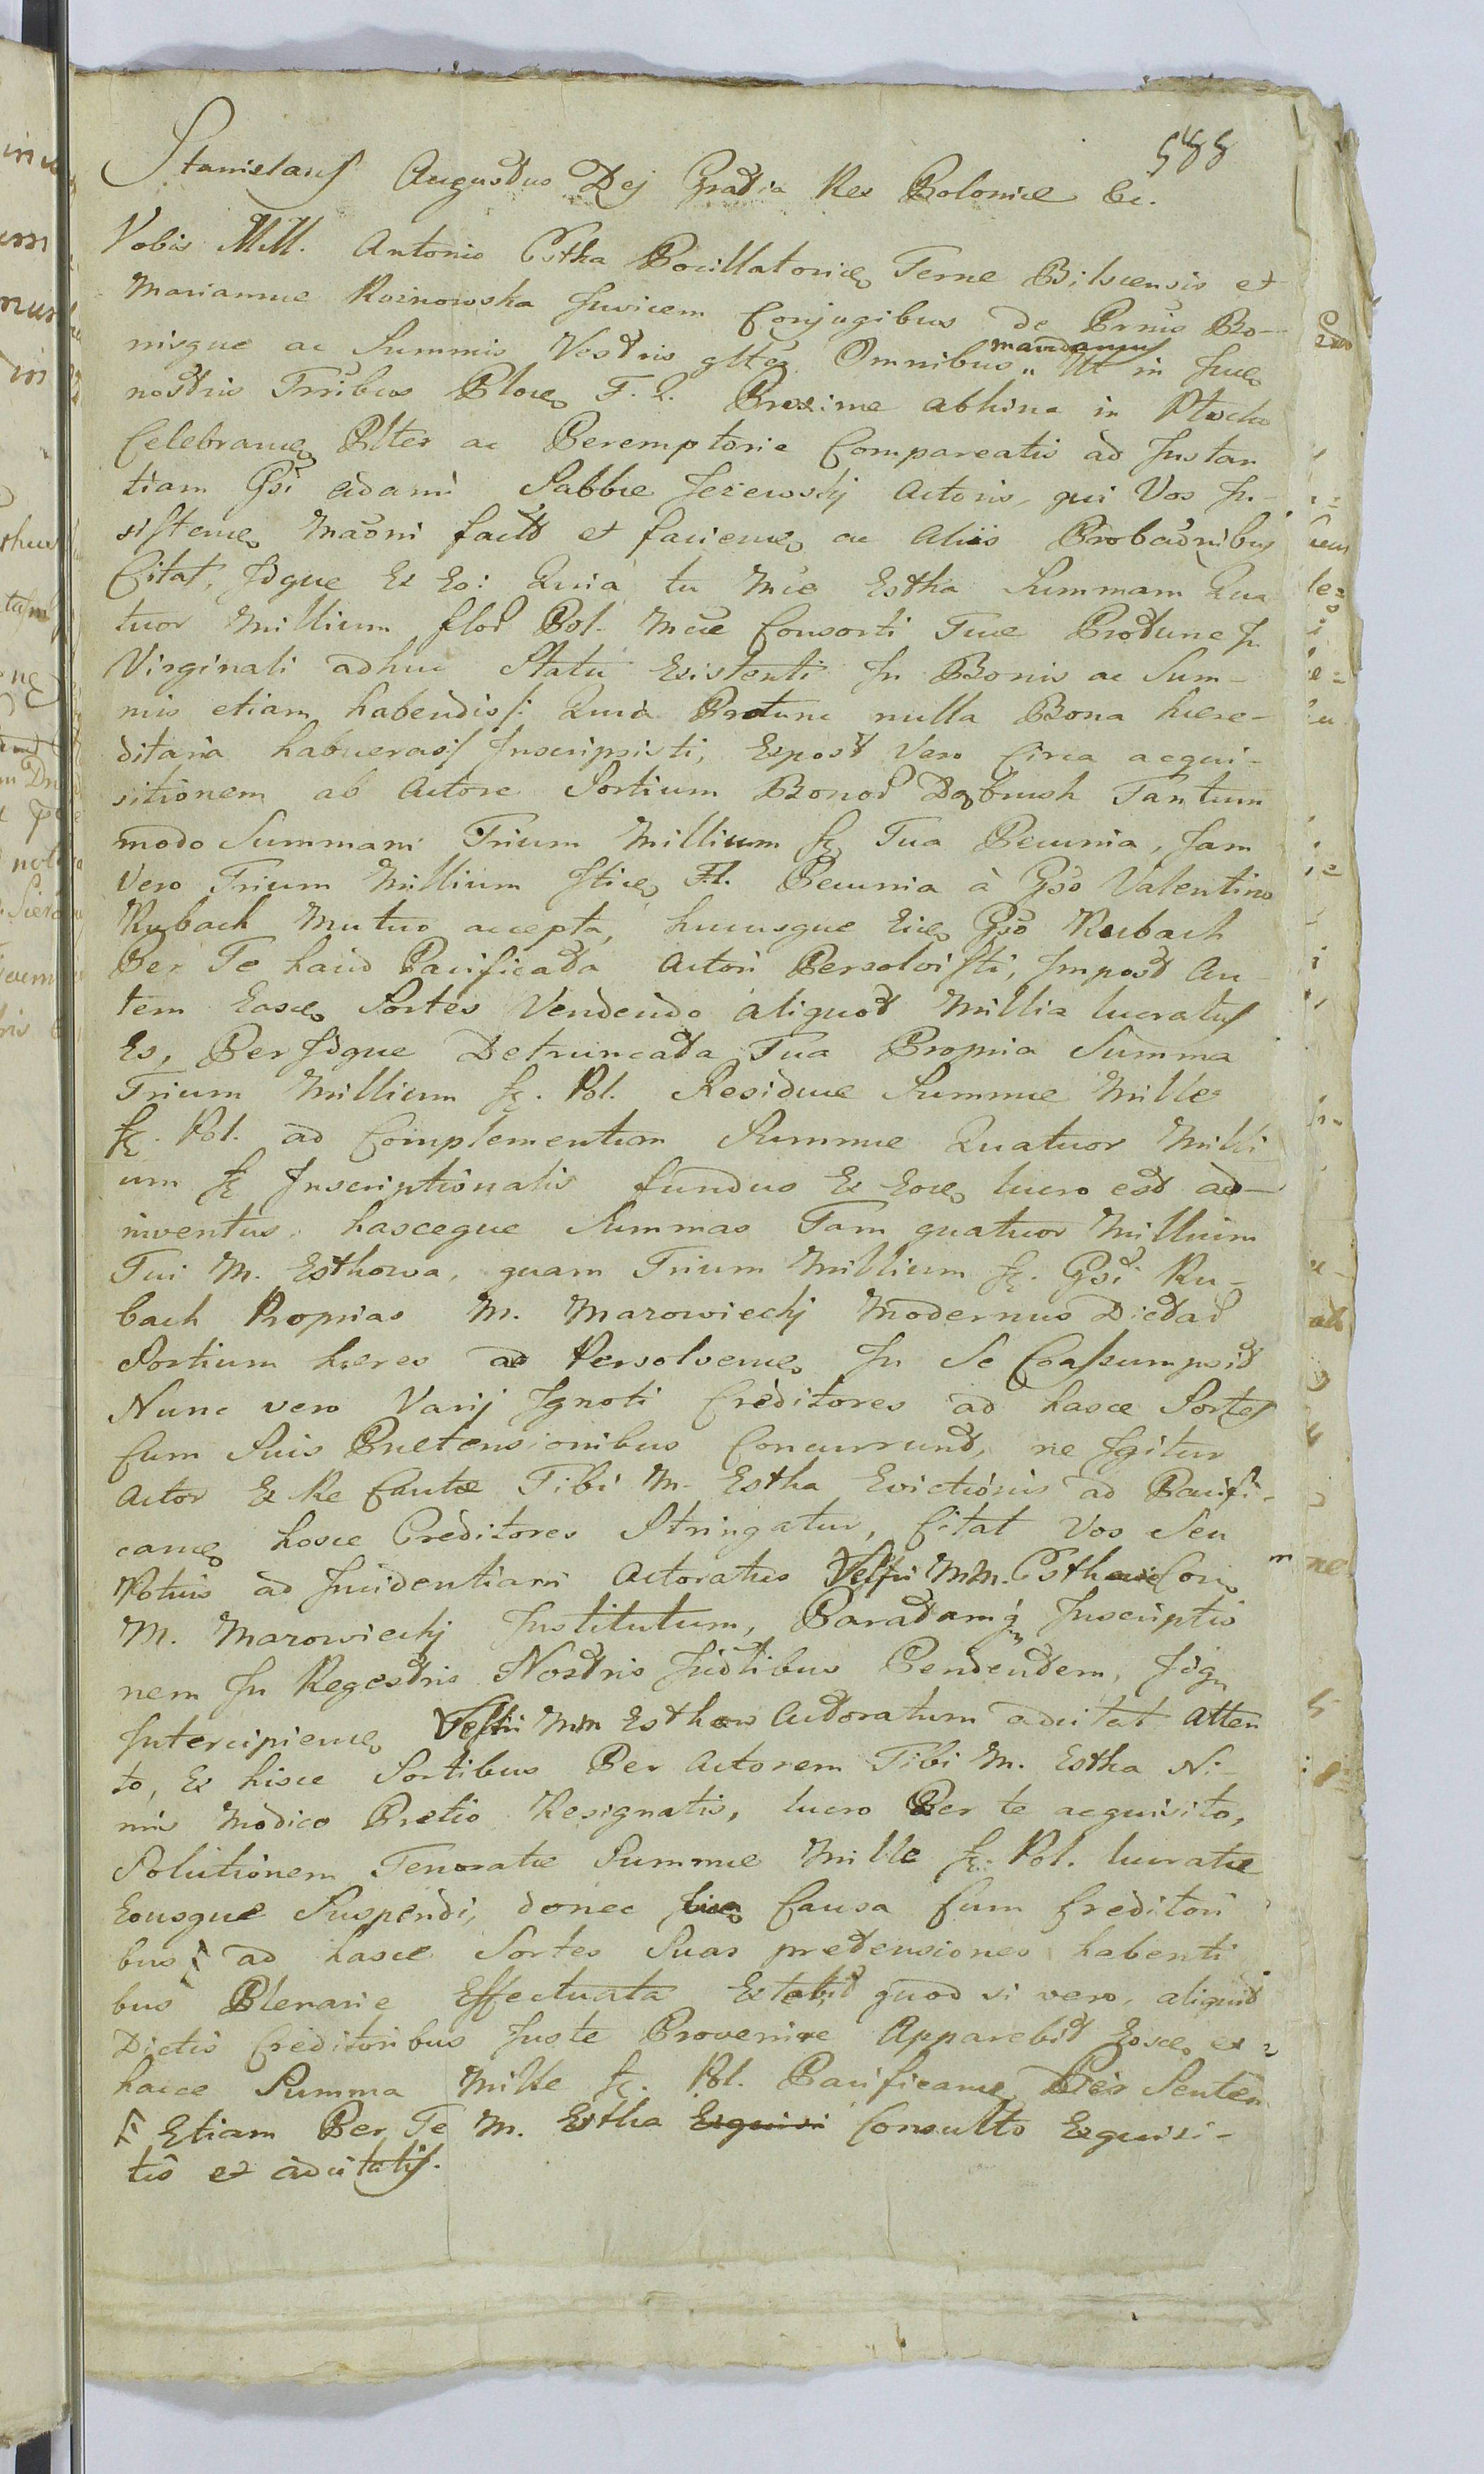 588
Stanislaus Augustus Dej Gratia Rex Poloniæ &c.
Vobis MM. Antonio Estha Pocillatoriæ Terræ Bilscensis et
Mariannæ Roznowska Invicem Conjugibus de Prnis Bo-
nisque ac Summis Vestris gltẽs Omnibus " mandamus Ut in Jue
nostris Trribus Ploce T. Q. Proxime abhinc in Plocko
Celebrane Plter ac Peremptorie Compareatis ad Instan
tiam Gsi Adami Sabbæ Jezewskj Actoris, qui Vos In-
sistene Maõni factæ et faciene ac Aliis Probaõnibus
Citat, Idque Ex Eo: Quia tu Mce Estha Summam Qua
tuor Millium flor Pol. Mcæ Consorti Tuæ Protunc In
Virginali adhuc Statu Existenti In Bonis ac Sum-
mis etiam habendis /: Quia Protunc nulla Bona hære-
ditaria habueras :/ Inscripsisti, Expost Vero Circa acqui-
sitionem ab Actore Sortium Bonor Dąbrusk Tantum
modo Summam Trium Millium fl Tua Pecunia, Jam
Vero Trium Millium Itide Fl. Pecunia à Gso Valentino
Rubach Mutuo accepta, hucusque Eide Gso Rubach
Per Te haud Pacificata Actori Persolvisti, Impost Au-
tem Easde Sortes Vendendo aliquot Millia lucratus
Es, Per Idque Detruncata Tua Propria Summa
Trium Millium fl. Pol. Residuæ Summæ Mille
fl. Pol. ad Complementum Summæ Quatuor Milli
um fl Inscriptionalis fundus Ex Eode lucro est ad-
inventus. hasceque Summas Tam quatuor Millium
Tui M. Esthowa, quam Trium Millium fl. Gsi Ru-
bach Proprias M. Marowieckj Modernus Dictar
Sortium hæres ad Persolvene In Se Coassumpsit
Nunc vero Varij Ignoti Creditores ad hasce Sortes
Cum Suis Prætensionibus Concurrunt, ne Igitur
Actor Ex Re Cautæ Tibi M. Estha Evictionis ad Pacifi-
cane hosce Creditores Stringatur, Citat Vos Seu
Potius ad Incidentiam Actoratus MM. Con
M. Marowieckj Institutum, Paratamq Inscriptio
nem In Regestris Nostris Judtibus Pendentem, Idq
Intercipiene MM Actoratum adcitat Atten
to, Ex hisce Sortibus Per Actorem Tibi M. Estha Ni-
mis Modico Pretio Resignatis, lucro Per te acquisito,
Solutionem Tenoratæ Summæ Mille fl. Pol. lucratæ
Eousque Suspendi, donec Causa Cum Creditori
bus ad hasce Sortes Suas pretensiones habenti
bus Plenarie Effectuata Extabit quod si vero, aliquid
Dictis Creditoribus Juste Provenire Apparebit Eosde ex
hacce Summa Mille fl. Pol. Pacificane Per Senten
Etiam Per Te M. Estha Exquisi Consulto Exquisi-
tis et adcitatis.